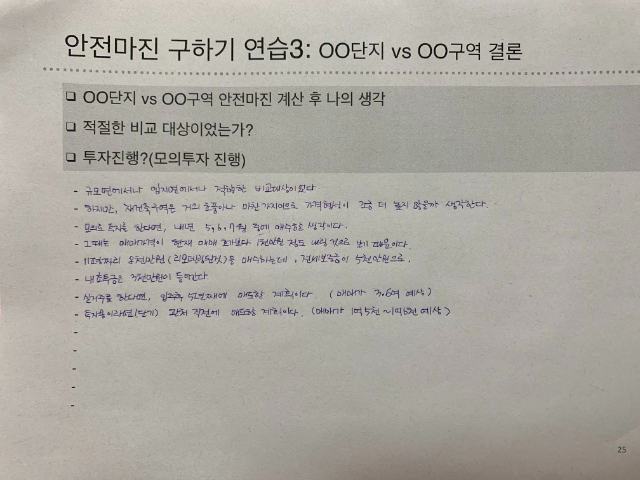 안전마진 구하기 연습3: OO단지 vs OO구역 결론
❑ OO단지 vs OO구역 안전마진 계산 후 나의 생각
❑ 적절한 비교 대상이었는가?
❑ 투자진행?(모의투자 진행)
- 규모면에서나 입지면에서나 적절한 비교대상이었다
- 하지만, 재건축구역은 거의 호품이나 마찬가지이므로 가격형성이 각종 더 높지 않을까 생각한다.
- 모의로 투자를 한다면, 내년 5, 6, 7월 중에 매수할 생각이다.
- 그때는 매매가격이 현재 매매 호가보다 1천만원 정도 내릴 것으로 보기 때문이다.
- 1억 천만원(리모델링된것)을 매수하는데, 전세보증금이 5천만원으로,
- 내 투자금은 천만원이 들어간다
- 실거주를 한다면, 입주후 5년차에 매도할 계획이다 (매매가 3.6억 예상)
- 투자용이라면(단기) 관처 직전에 매도할 계획이다. (매매가 1억5천~ 예상)
-
-
-
-
25